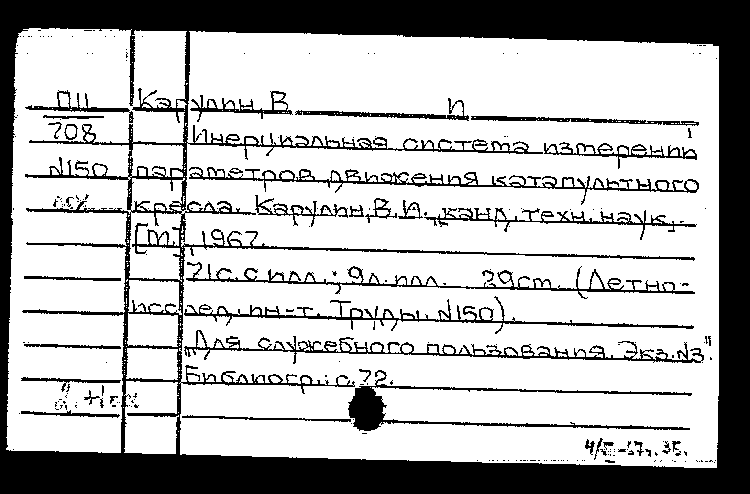 П11 Карулин, В. И
708 Инерциальная система измерений
№150 параметров движения катапультного
кресла. Карулин, В.И., канд. техн. наук,.
[М.], 1967.
71с. с илл.; 9л. илл. 29см. (Летно-
исслед. ин-т. Труды. №150).
"Для служебного пользования. Экз.№3".
Библиогр.: с.72.
35.